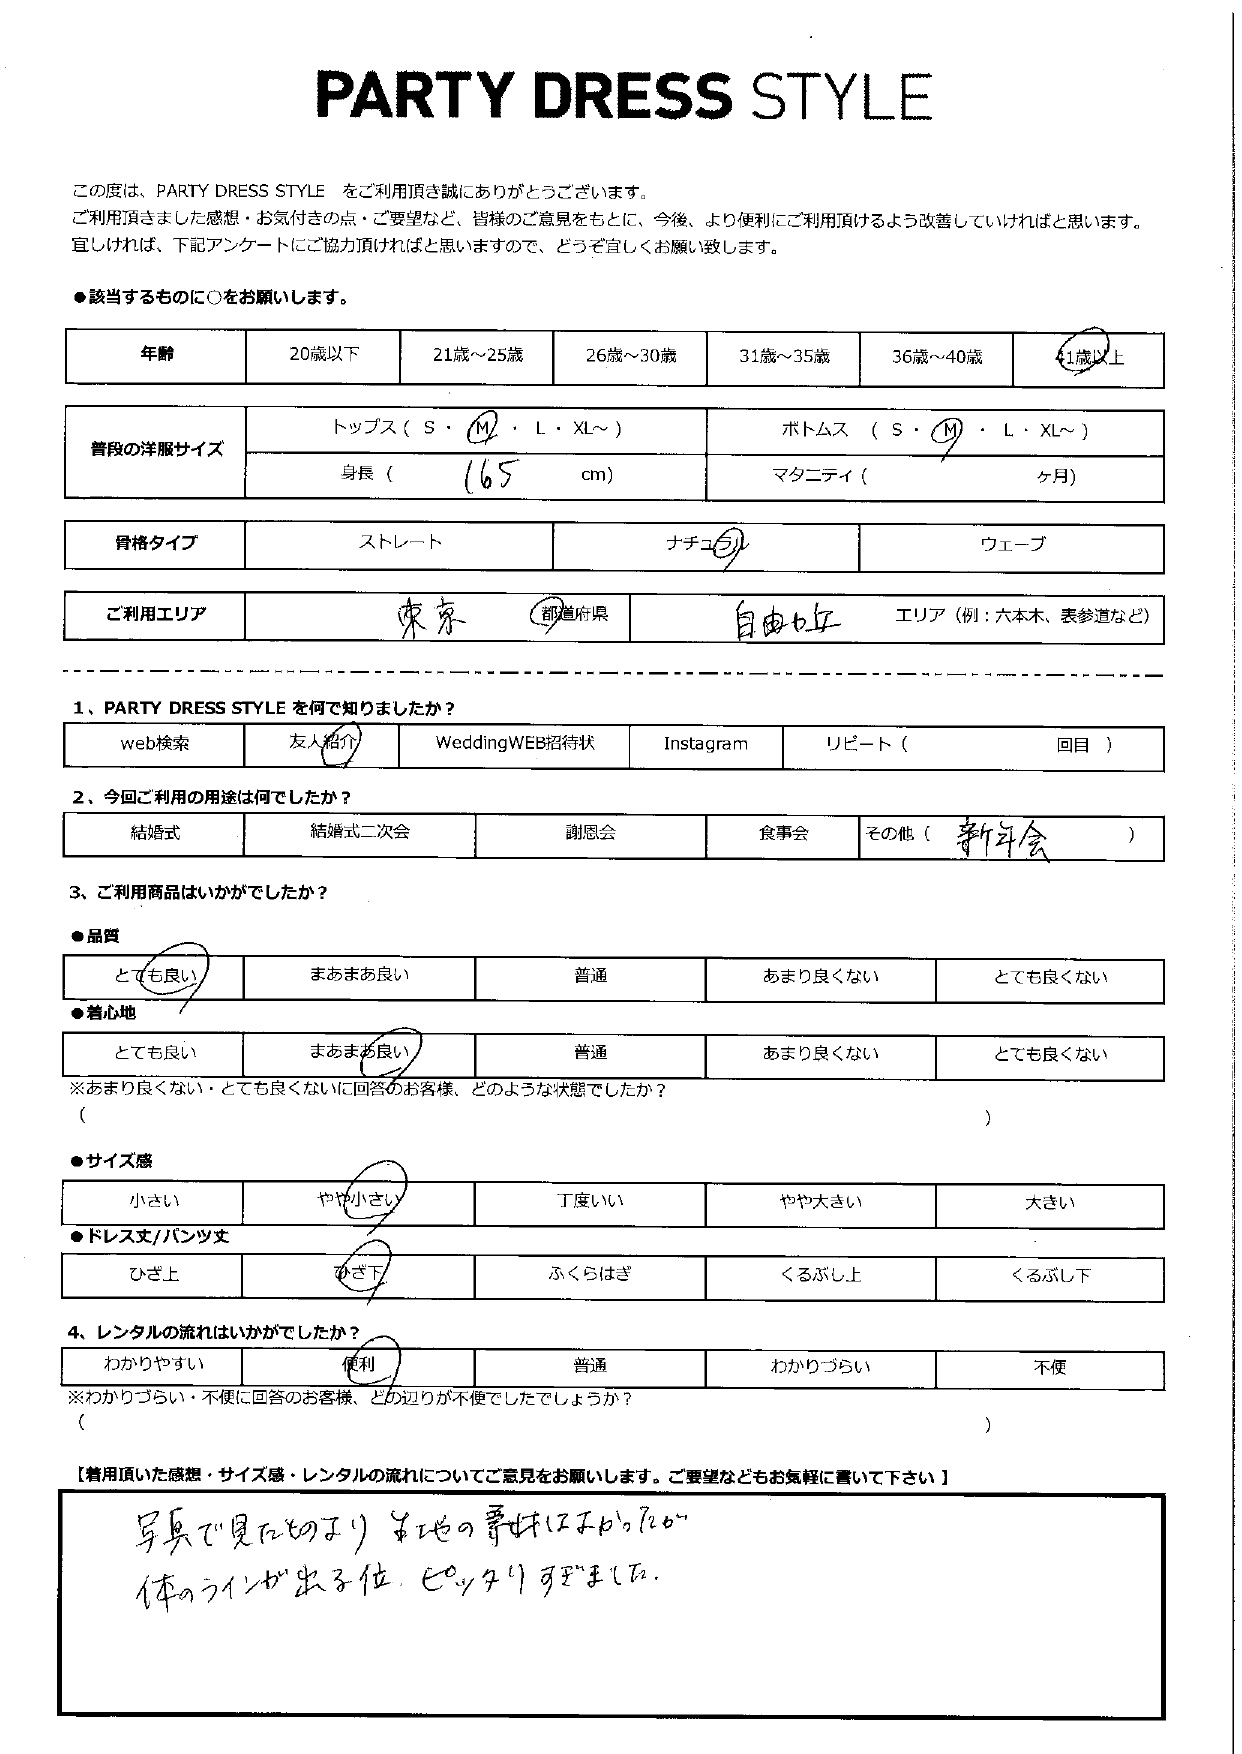 PARTY DRESS STYLE
この度は、PARTY DRESS STYLE をご利用頂き誠にありがとうございます。
ご利用頂きました感想・お気付きの点・ご要望など、皆様のご意見をもとに、今後、より便利にご利用頂けるよう改善していければと思います。
宜しければ、下記アンケートにご協力頂ければと思いますので、どうぞ宜しくお願い致します。
●該当するものに○をお願いします。
年齢 20歳以下 21歳～25歳 26歳～30歳 31歳～35歳 36歳～40歳 41歳以上
普段の洋服サイズ トップス ( S ・ M ・ L ・ XL～ ) ボトムス ( S ・ M ・ L ・ XL～ )
身長 ( 165 cm) マタニティ ( ヶ月)
骨格タイプ ストレート ナチュラル ウェーブ
ご利用エリア 東京 都道府県 自由ヶ丘 エリア（例：六本木、表参道など）
1、PARTY DRESS STYLE を何で知りましたか？
web検索 友人紹介 WeddingWEB招待状 Instagram リピート ( 回目 )
2、今回ご利用の用途は何でしたか？
結婚式 結婚式二次会 謝恩会 食事会 その他 ( 新年会 )
3、ご利用商品はいかがでしたか？
●品質
とても良い まあまあ良い 普通 あまり良くない とても良くない
●着心地
とても良い まあまあ良い 普通 あまり良くない とても良くない
※あまり良くない・とても良くないに回答のお客様、どのような状態でしたか？
( )
●サイズ感
小さい やや小さい 丁度いい やや大きい 大きい
●ドレス丈/パンツ丈
ひざ上 ひざ下 ふくらはぎ くるぶし上 くるぶし下
4、レンタルの流れはいかがでしたか？
わかりやすい 便利 普通 わかりづらい 不便
※わかりづらい・不便に回答のお客様、どの辺りが不便でしたでしょうか？
( )
【着用頂いた感想・サイズ感・レンタルの流れについてご意見をお願いします。ご要望などもお気軽に書いて下さい 】
写真で見たものより 生地の素材はよかったが
体のラインが出る位、ピッタリすぎました.